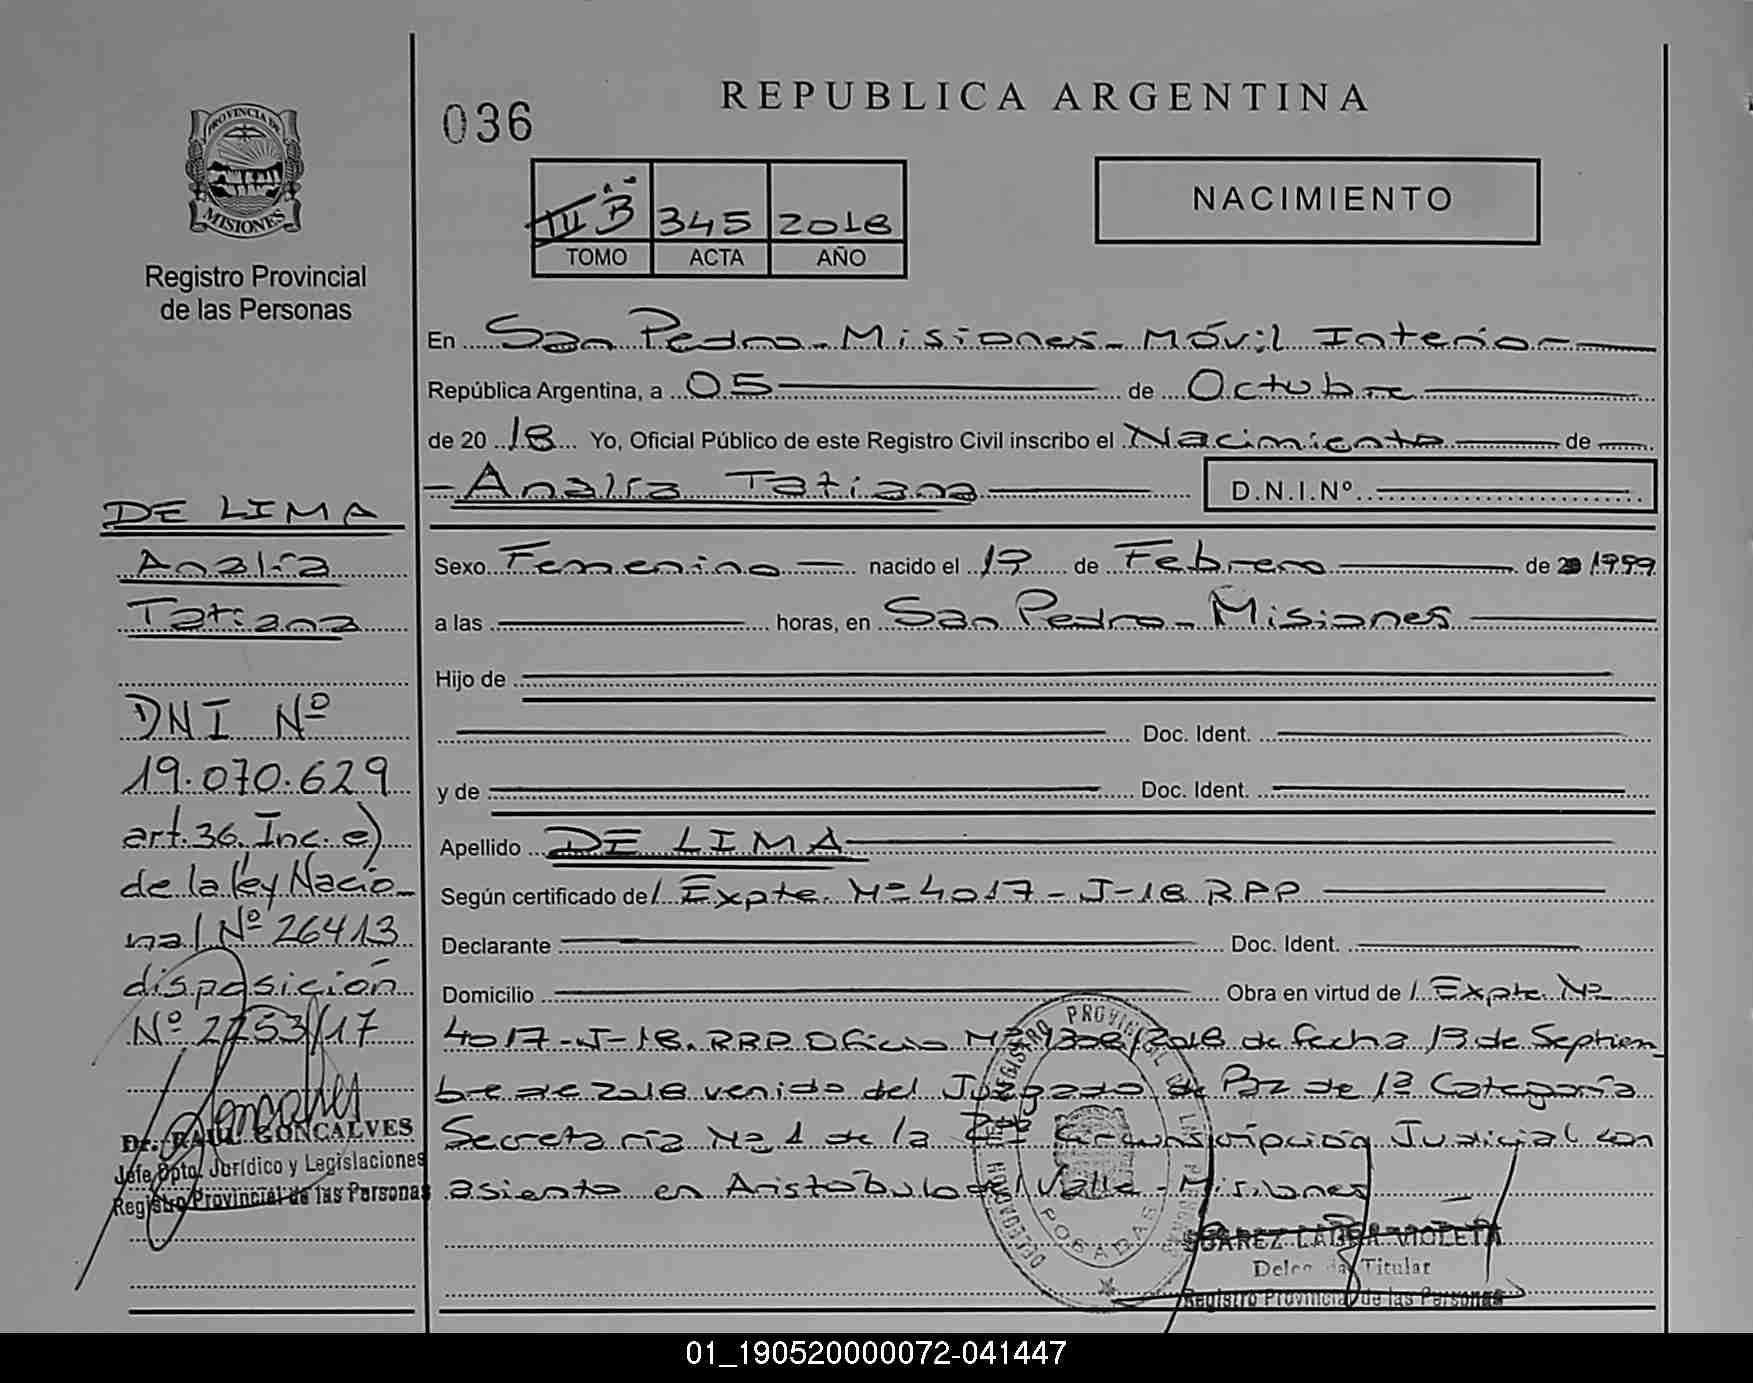 REPUBLICA ARGENTINA
036
PROVINCIA DE
MISIONES
Registro Provincial
de las Personas
III B 345 2018
TOMO ACTA AÑO
NACIMIENTO
En San Pedro - Misiones - Móvil Interior
República Argentina, a 05 de Octubre
de 20 18 Yo, Oficial Público de este Registro Civil inscribo el Nacimiento de
Analía Tatiana D.N.I.Nº
Sexo Femenino nacido el de Febrero de 1999
a las horas, en San Pedro - Misiones
Hijo de
Doc. Ident.
y de Doc. Ident.
Apellido DE LIMA
Según certificado de / Expte. Nº 4017 - J - 18 RPP
Declarante Doc. Ident.
Domicilio Obra en virtud de / Expte Nº
4017 - J - 18. RPP Oficio Nº 1308/2018 de fecha 13 de Septiem
bre de 2018 venido del Juzgado de Paz de 1ª Categoría
Secretaría Nº 1 de la Circunscripción Judicial con
asiento en Aristóbulo del Valle - Misiones
DE LIMA
Analía
Tatiana
DNI Nº
19.070.629
art. 36 Inc. e)
de la ley Nacio-
nal Nº 26413
disposición
Nº 2253/17
Dr. RAUL GONCALVES
Jefe Dpto. Jurídico y Legislaciones
Registro Provincial de las Personas
REGISTRO PROVINCIAL DE LAS PERSONAS
POSADAS
SUAREZ LAURA VIOLETA
Delegada Titular
Registro Provincial de las Personas
01_190520000072-041447